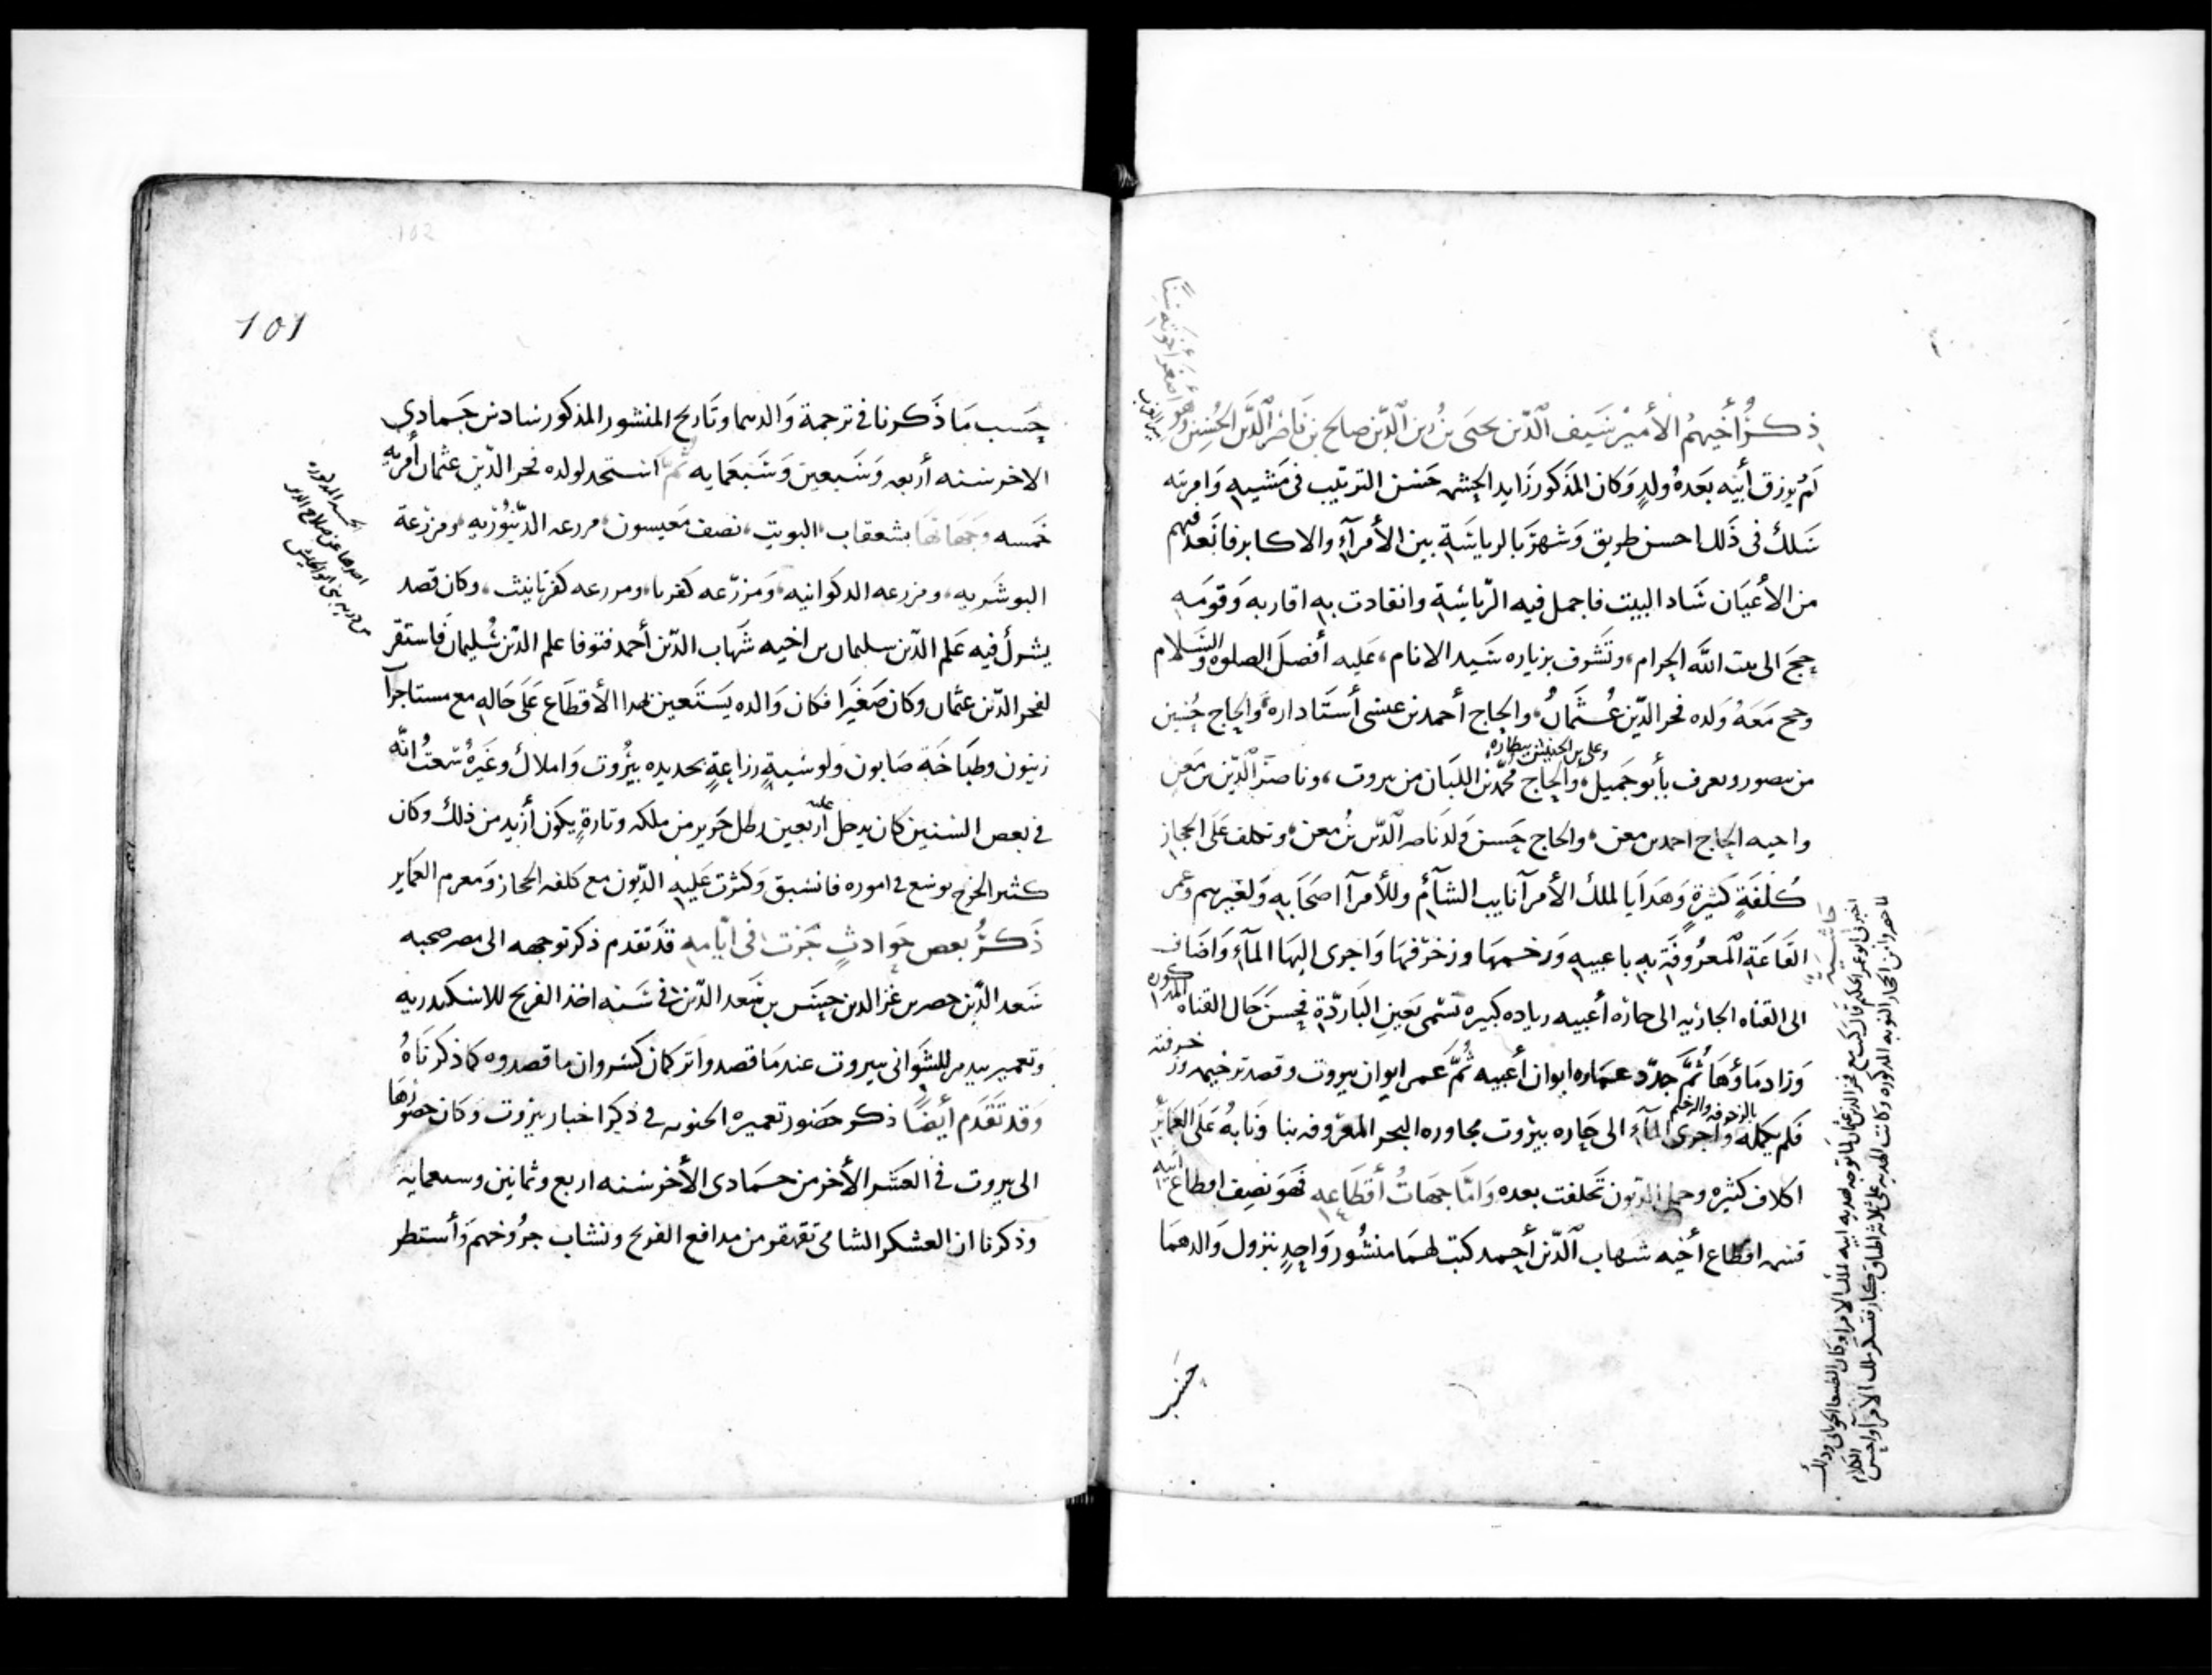 ذكر أخيهم الأمير سيف الدين يحيى بن زين الدين صالح بن ناصر الدين الحسين وهو
أصغر أخوته سنا
لم يرزق أبيه بعده ولد وكان المذكور زايد الحشمه حسن الترتيب في مشيه وامرته
سلك في ذلك احسن طريق وشهر بالرياسة بين الأمرآء والاكابر فانعد فيهم
من الأعيان شاد البيت فاجمل فيه الرياسة وانقادت به اقاربه وقومه
حج الى بيت الله الحرام، وتشرف بزياره سيد الانام، عليه أفضل الصلوه والسلام
وحج معه ولده فخر الدين عثمان، والحاج أحمد بن عيسى أستاداره، والحاج حسين
وعلي بن الحنيش بيطاره
من منصور ويعرف بأبو جميل، والحاج محمد بن اللبان من بيروت، وناصر الدين بن معن
واخيه الحاج احمد بن معن، والحاج حسن ولد ناصر الدين بن معن، وتكلف على الحجاز
كلفة كثيرة وهدايا لملك الأمرآ نايب الشآم وللأمرآ اصحابه ولغيرهم وعمر
القاعة المعروفة به باعبيه ورخمها وزخرفها واجرى اليها المآء واضاف
الى القناه الجاريه الى حارة أعبيه زياده كبيره تسمى بعين الباردة فحسن حال القناه المذكوره
وزاد ماؤها ثم جدد عماره ايوان أعبيه ثم عمر ايوان بيروت وقصد ترخيمه وزخرفته
بالزخرفه والرخام
فلم يكمله وأجرى المآء الى حاره بيروت مجاوره البحر المعروفه بنا ونابه على العماير
اكلاف كثيره وحمل الديون تخلفت بعده وأما جهات أقطاعه فهو نصف اقطاع أبيه
قسمه اقطاع أخيه شهاب الدين أحمد كتب لهما منشور واحد بنزول والدهما
حسب
حاشية
اخبرني ابو عمر الحكم قال كنت مع فخر الدين عثمان لما توجه بهديه ابيه لملك الامرا وكان الطنبغا الجوباني وذلك
لما حضروا من الحجاز النوبه المذكوره وكانت الهديه على ثلاثه اطباق كبار فتشكر ملك الأمرآ واحسن الكلام
101
حسب ما ذكرنا في ترجمة والدهما وتاريخ المنشور المذكور سادس جمادى
الاخر سنه أربعه وسبعين وسبعمايه ثم استجد لولده فخر الدين عثمان أمريه
خمسه وجهاتها بشعقاب، البويت، نصف معيسون، مزرعه الدينوريه، ومزرعة
البوشريه، ومزرعه الدكوانيه، ومزرعه كفريا، ومزرعه كفرتانيث، وكان قصد
يشرك فيه علم الدين سليمان بن اخيه شهاب الدين أحمد فتوفا علم الدين سليمان فاستقر
لفخر الدين عثمان وكان صغيرا فكان والده يستعين بهدا الأقطاع على حاله مع مستاجرآ
زيتون وطباخة صابون ولوسية زراعة بحديده بيروت واملاك وغيره سمعت انه
في بعض السنين كان يدخل عليه أربعين رطل حرير من ملكه وتارة يكون أزيد من ذلك وكان
كثير الخرج يوسع في اموره فانسبق وكثرت عليه الديون مع كلفه الحجاز ومغرم العماير
ذكر بعض حوادث جرت في ايامه قد تقدم ذكر توجهه الى مصر صحبه
سعد الدين خضر بن عز الدين حسن بن سعد الدين، في سنه اخذ الفرنج للاسكندريه
وتعمير بيدمر للشواني ببيروت عندما قصدوا تركمان كسروان ما قصدوه كما ذكرناه
وقد تقدم أيضا ذكر حضور تعميره الجنويه في ذكر اخبار بيروت وكان حضورها
الى بيروت في العشر الأخر من جمادى الأخر سنه اربع وثمانين وسبعمايه
وذكرنا ان العسكر الشامي تقهقر من مدافع الفرنج ونشاب جروخهم وأستظهر